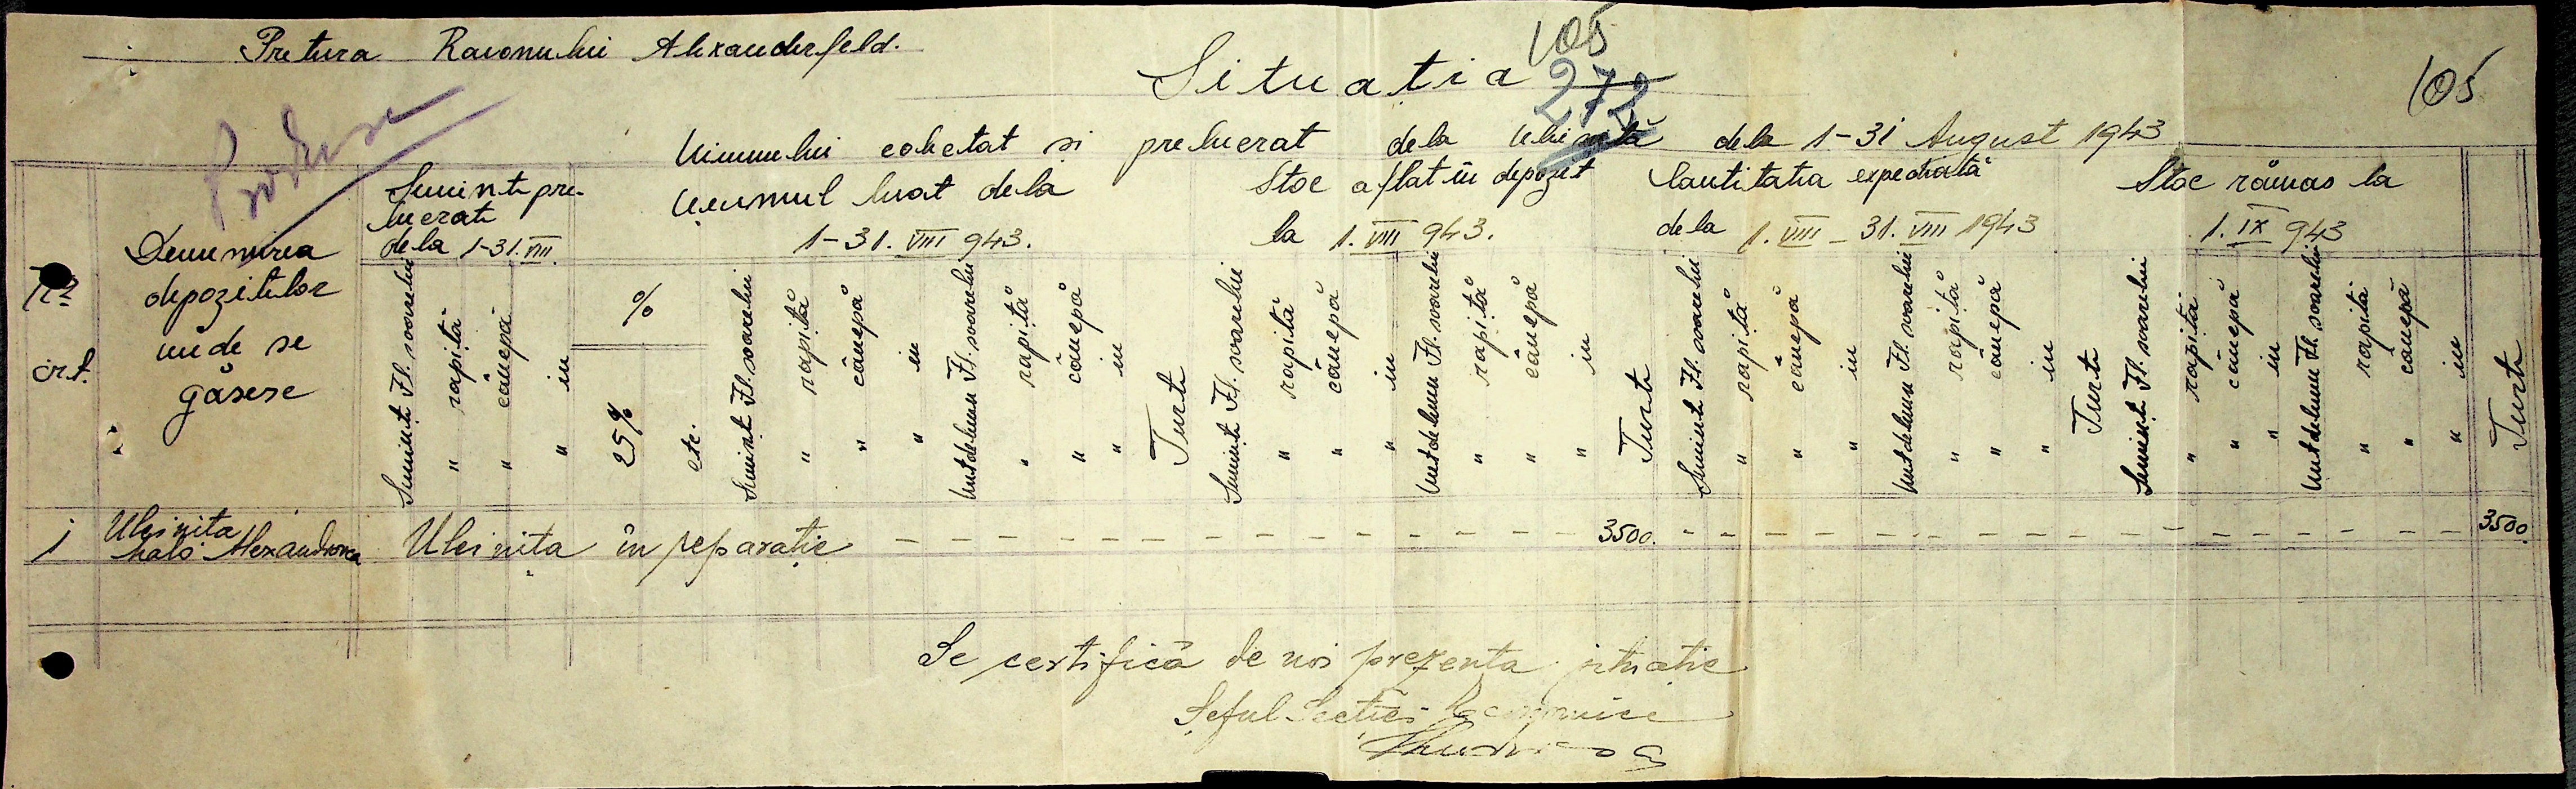 Pretura Raionului Alexanderfeld.
105
Situația
272
105
Produse
Uiumului colectat și prelucrat dela Uleiniță dela 1-31 August 1943
Nr.
crt.
Denumirea
depozitelor
unde se
găsesc
Seminte pre-
lucrate
dela 1-31.VIII.
Semințe Fl. soarelui
" rapiță
" cânepă
" in
%
25%
etc.
Uiumul luat dela
1-31. VIII 943.
Seminte Fl. soarelui
" rapiță
" cânepă
" in
Unt de lemn Fl. soarelui
" rapiță
" cânepă
" in
Turte
Stoc aflat în depozit
la 1. VIII 943.
Seminte Fl. soarelui
" rapiță
" cânepă
" in
Unt de lemn Fl. soarelui
" rapiță
" cânepă
" in
Turte
Cantitatea expediată
dela 1. VIII - 31. VIII 1943
Seminte Fl. soarelui
" rapiță
" cânepă
" in
Unt de lemn Fl. soarelui
" rapiță
" cânepă
" in
Turte
Stoc rămas la
1. IX 943
Seminte Fl. soarelui
" rapiță
" cânepă
" in
Unt de lemn Fl. soarelui
" rapiță
" cânepă
" in
Turte
1 Uleinița
Malo Alexandrovca Uleinița în reparație - - - - - - - - - - - - - 3500. - - - - - - - - - - - - - - - - - 3500.
Se certifică de noi prezenta situație
Șeful Secției Economice